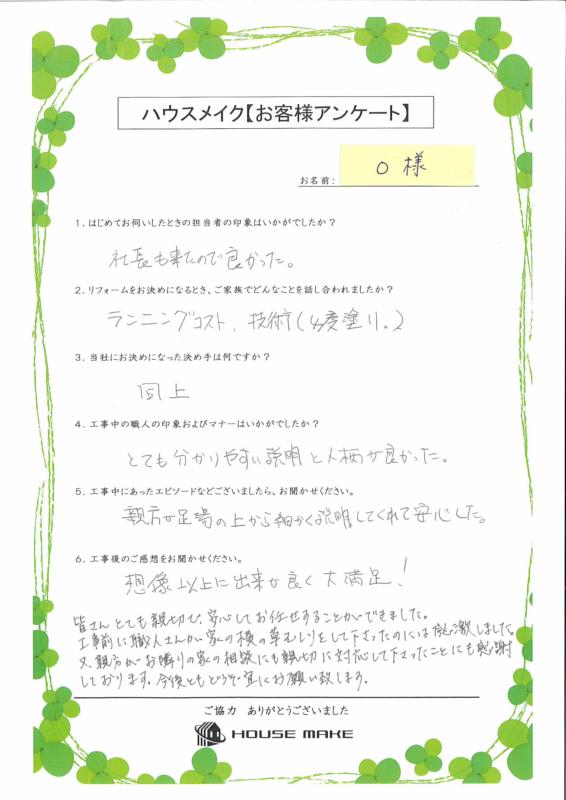 ハウスメイク【お客様アンケート】
お名前: O 様
1.はじめてお伺いしたときの担当者の印象はいかがでしたか?
社長も来たので良かった。
2.リフォームをお決めになるとき、ご家族でどんなことを話し合われましたか?
ランニングコスト、技術(4度塗り。)
3.当社にお決めになった決め手は何ですか?
同上
4.工事中の職人の印象およびマナーはいかがでしたか?
とても分かりやすい説明と人柄が良かった。
5.工事中にあったエピソードなどございましたら、お聞かせください。
親方が足場の上から細かく説明してくれて安心した。
6.工事後のご感想をお聞かせください。
想像以上に出来が良く大満足!
皆さんとても親切で、安心してお任せすることができました。
工事前に職人さんが家の横の草むしりをして下さったのには感激しました。
又、親方がお隣りの家の相談にも親切に対応して下さったことにも感謝
しております。今後ともどうぞ宜しくお願い致します。
ご協力 ありがとうございました
HOUSE MAKE